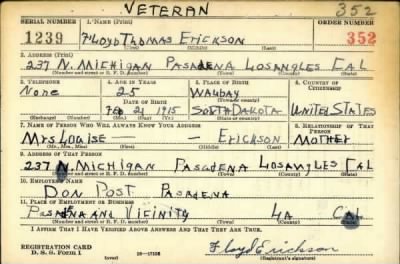 VETERAN 352
SERIAL NUMBER 1. NAME (Print) ORDER NUMBER
1239 Floyd Thomas Erickson 352
(First) (Middle) (Last)
2. ADDRESS (Print)
237 N. MICHIGAN PASADENA LOSANGLES CAL
(Number and street or R. F. D. number) (Town) (County) (State)
3. TELEPHONE 4. AGE IN YEARS 5. PLACE OF BIRTH 6. COUNTRY OF CITIZENSHIP
None 25 WAUBAY
DATE OF BIRTH (Town or county)
FEB 21 1915 SOUTH DAKOTA UNITED STATES
(Exchange) (Number) (Mo.) (Day) (Yr.) (State or country)
7. NAME OF PERSON WHO WILL ALWAYS KNOW YOUR ADDRESS 8. RELATIONSHIP OF THAT PERSON
Mrs Louise — ERICKSON MOTHER
(Mr., Mrs., Miss) (First) (Middle) (Last)
9. ADDRESS OF THAT PERSON
237 N. MICHIGAN PASADENA LOSANGLES CAL
(Number and street or R. F. D. number) (Town) (County) (State)
10. EMPLOYER'S NAME
DON POST PASADENA
11. PLACE OF EMPLOYMENT OR BUSINESS
PASADENA AND VICINITY LA CAL
(Number and street or R. F. D. number) (Town) (County) (State)
I AFFIRM THAT I HAVE VERIFIED ABOVE ANSWERS AND THAT THEY ARE TRUE.
REGISTRATION CARD Floyd Erickson
D. S. S. Form 1 (Registrant's signature)